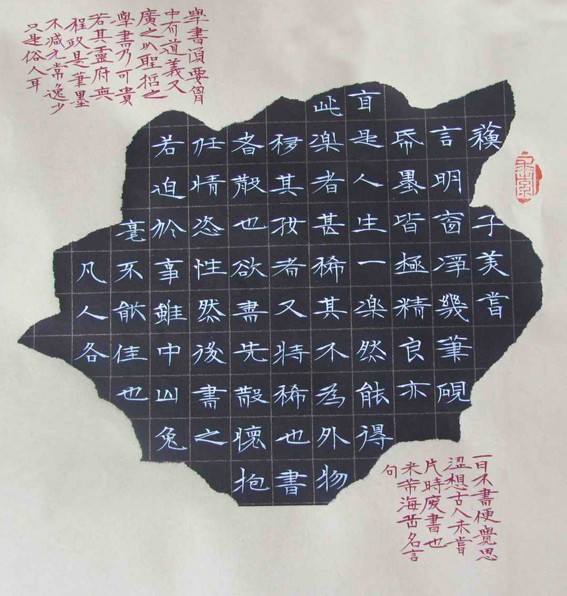 蘓子美嘗
言明窗淨幾筆硯
帋墨皆極精良亦
自是人生一楽然能得
此楽者甚稀其不為外物
移其好者又特稀也書
者散也欲書先散懷抱
任情恣性然後書之
若迫於事雖中山兔
毫不能佳也
凡人各
學書須要胷
中有道義又
廣之以聖哲之
學書乃可貴
若其靈府無
程政是筆墨
不減元常逸少
只是俗人耳
一日不書便覺思
澀想古人未嘗
片時廢書也
米芾海岳名言
句